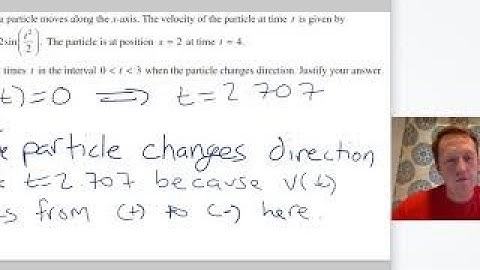 a particle moves along the x-axis. The velocity of the particle at time t is given by
2sin(t²/2). The particle is at position x = 2 at time t = 4.
times t in the interval 0 < t < 3 when the particle changes direction. Justify your answer
t) = 0 ⟹ t = 2.707
particle changes direction
t = 2.707 because v(t)
from (+) to (-) here.